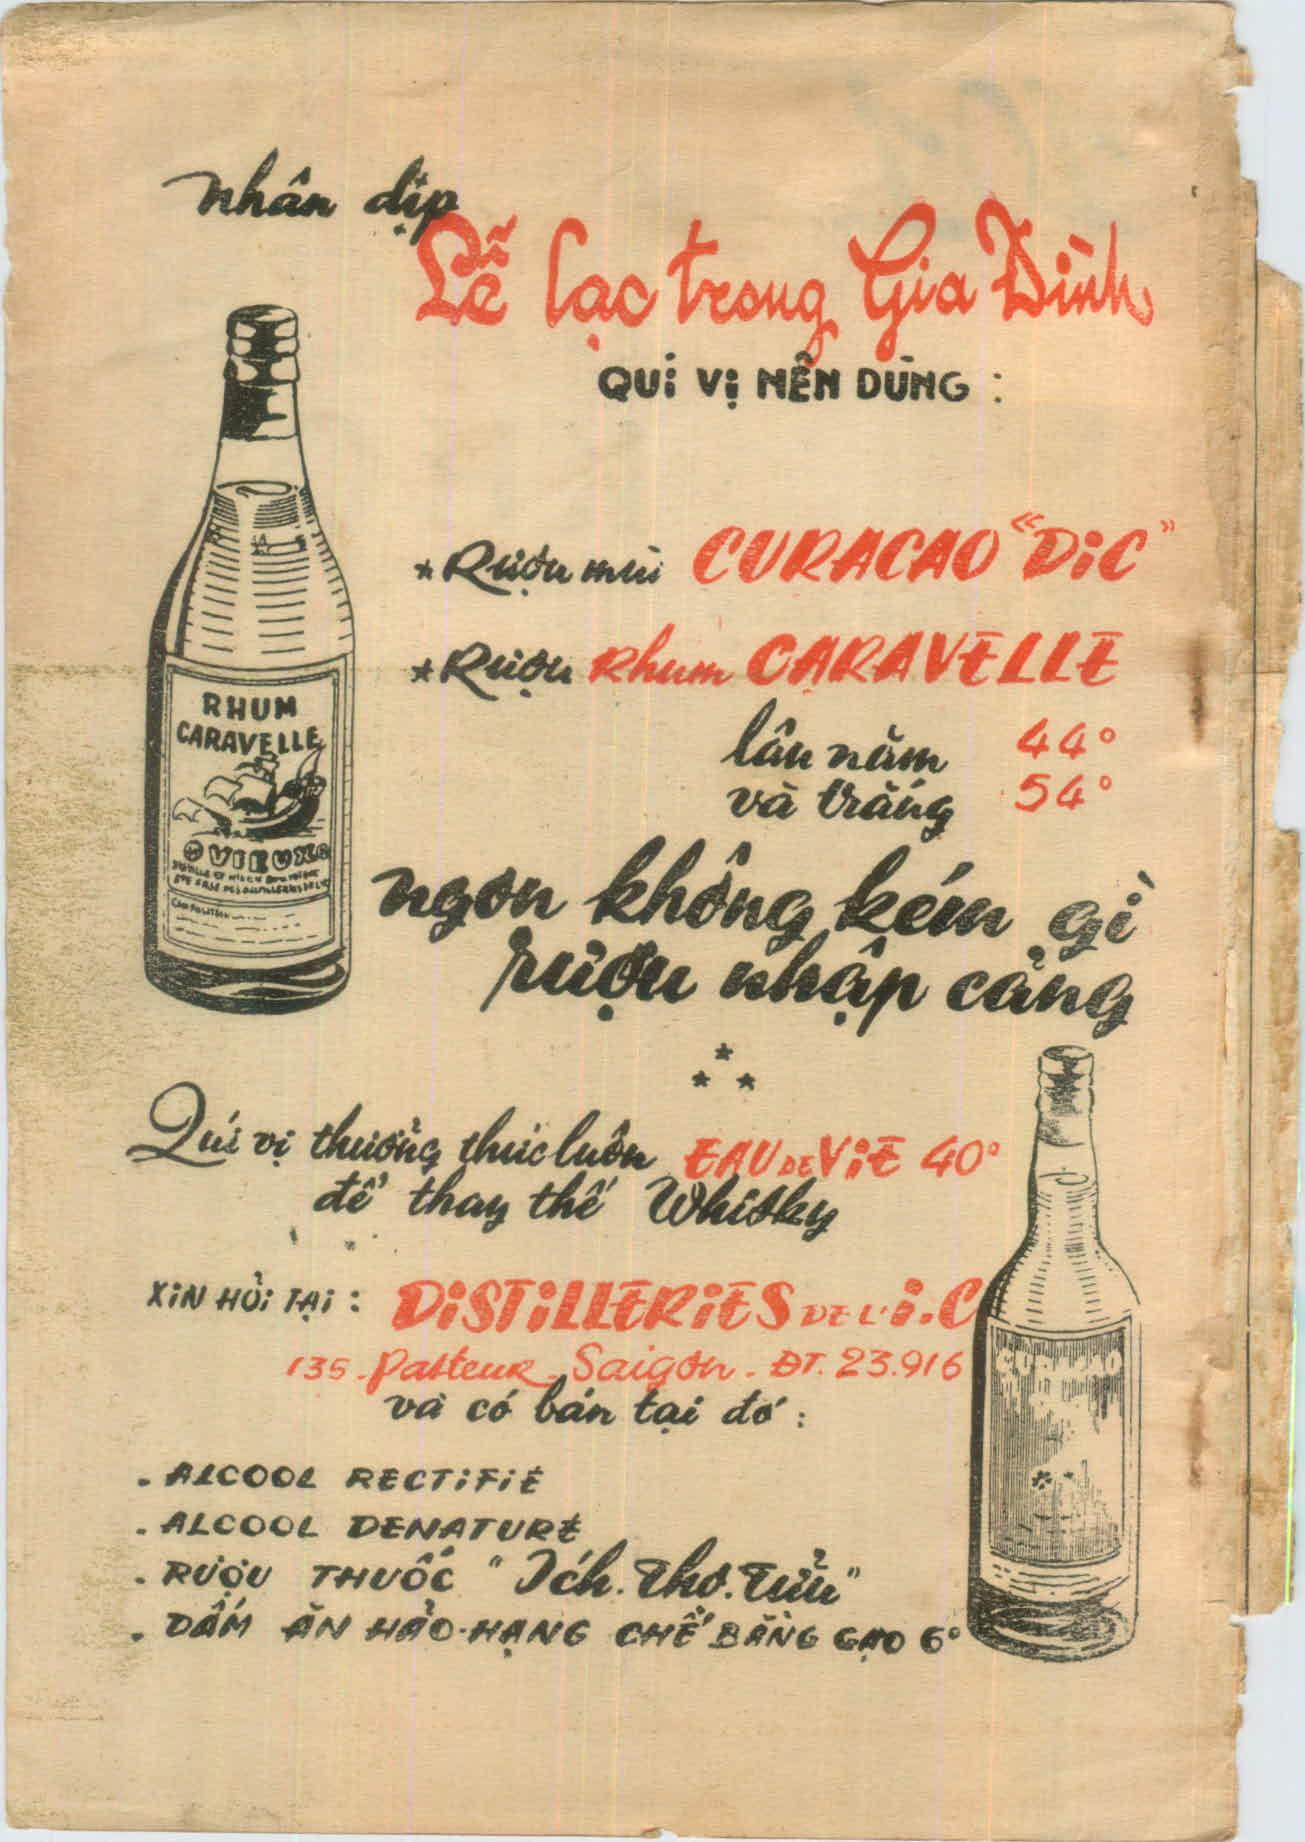 nhân dịp
Lễ lạc trong Gia Đình
QUÍ VỊ NÊN DÙNG :
* Rượu mùi CURACAO "DIC"
* Rượu Rhum CARAVELLE
lâu năm 44°
và trắng 54°
ngon không kém gì
rượu nhập cảng
Quí vị thưởng thức luôn EAU DE VIE 40°
để thay thế Whisky
XIN HỎI TẠI : DISTILLERIES DE L'I.C
135 - Pasteur - Saigon - ĐT. 23.916
và có bán tại đó :
. ALCOOL RECTIFIÉ
. ALCOOL DENATURÉ
. RƯỢU THUỐC "Ích. Thọ. Tửu"
. DẤM ĂN HẢO-HẠNG CHẾ BẰNG GẠO 6°
RHUM
CARAVELLE
VIEUX
CURACAO